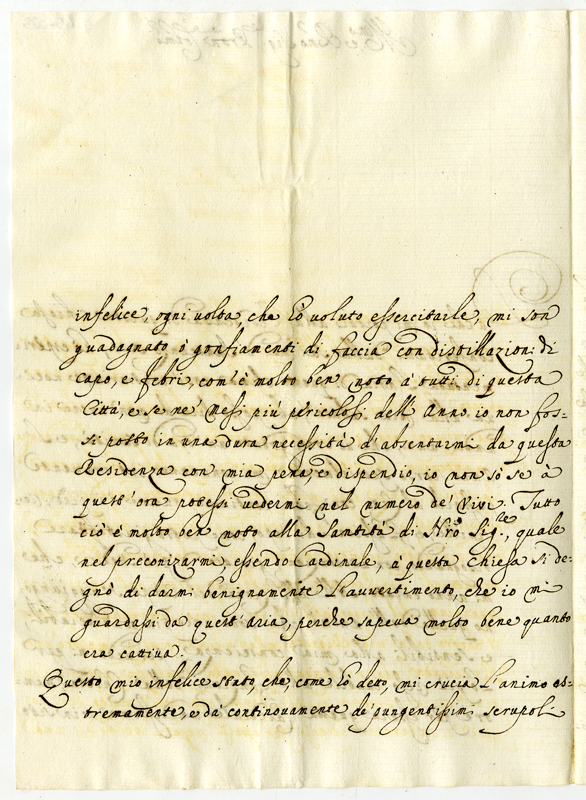 infelice, ogni volta, che hò voluto essercitarle, mi son
guadagnato ò gonfiamenti di faccia con distillazioni di
capo, e febri, com'è molto ben noto à tutti di questa
Città, e se ne' Mesi più pericolosi dell'Anno io non fos=
si posto in una dura necessità d'absentarmi da questa
Residenza con mia pena, e dispendio, io non sò se à
quest'ora potessi vedermi nel numero de' Vivi. Tutto
ciò è molto ben noto alla Santità di Nr̃o Sig.re, quale
nel preconizarmi, essendo Cardinale, à questa Chiesa si de=
gnò di darmi benignamente l'avvertimento, che io mi
guardassi da quest'aria, perche sapeva molto bene quanto
era cattiva.
Questo mio infelice stato, che, come hò detto, mi crucia l'animo es=
tremamente, e dà continovamente de' pungentissimi scrupoli